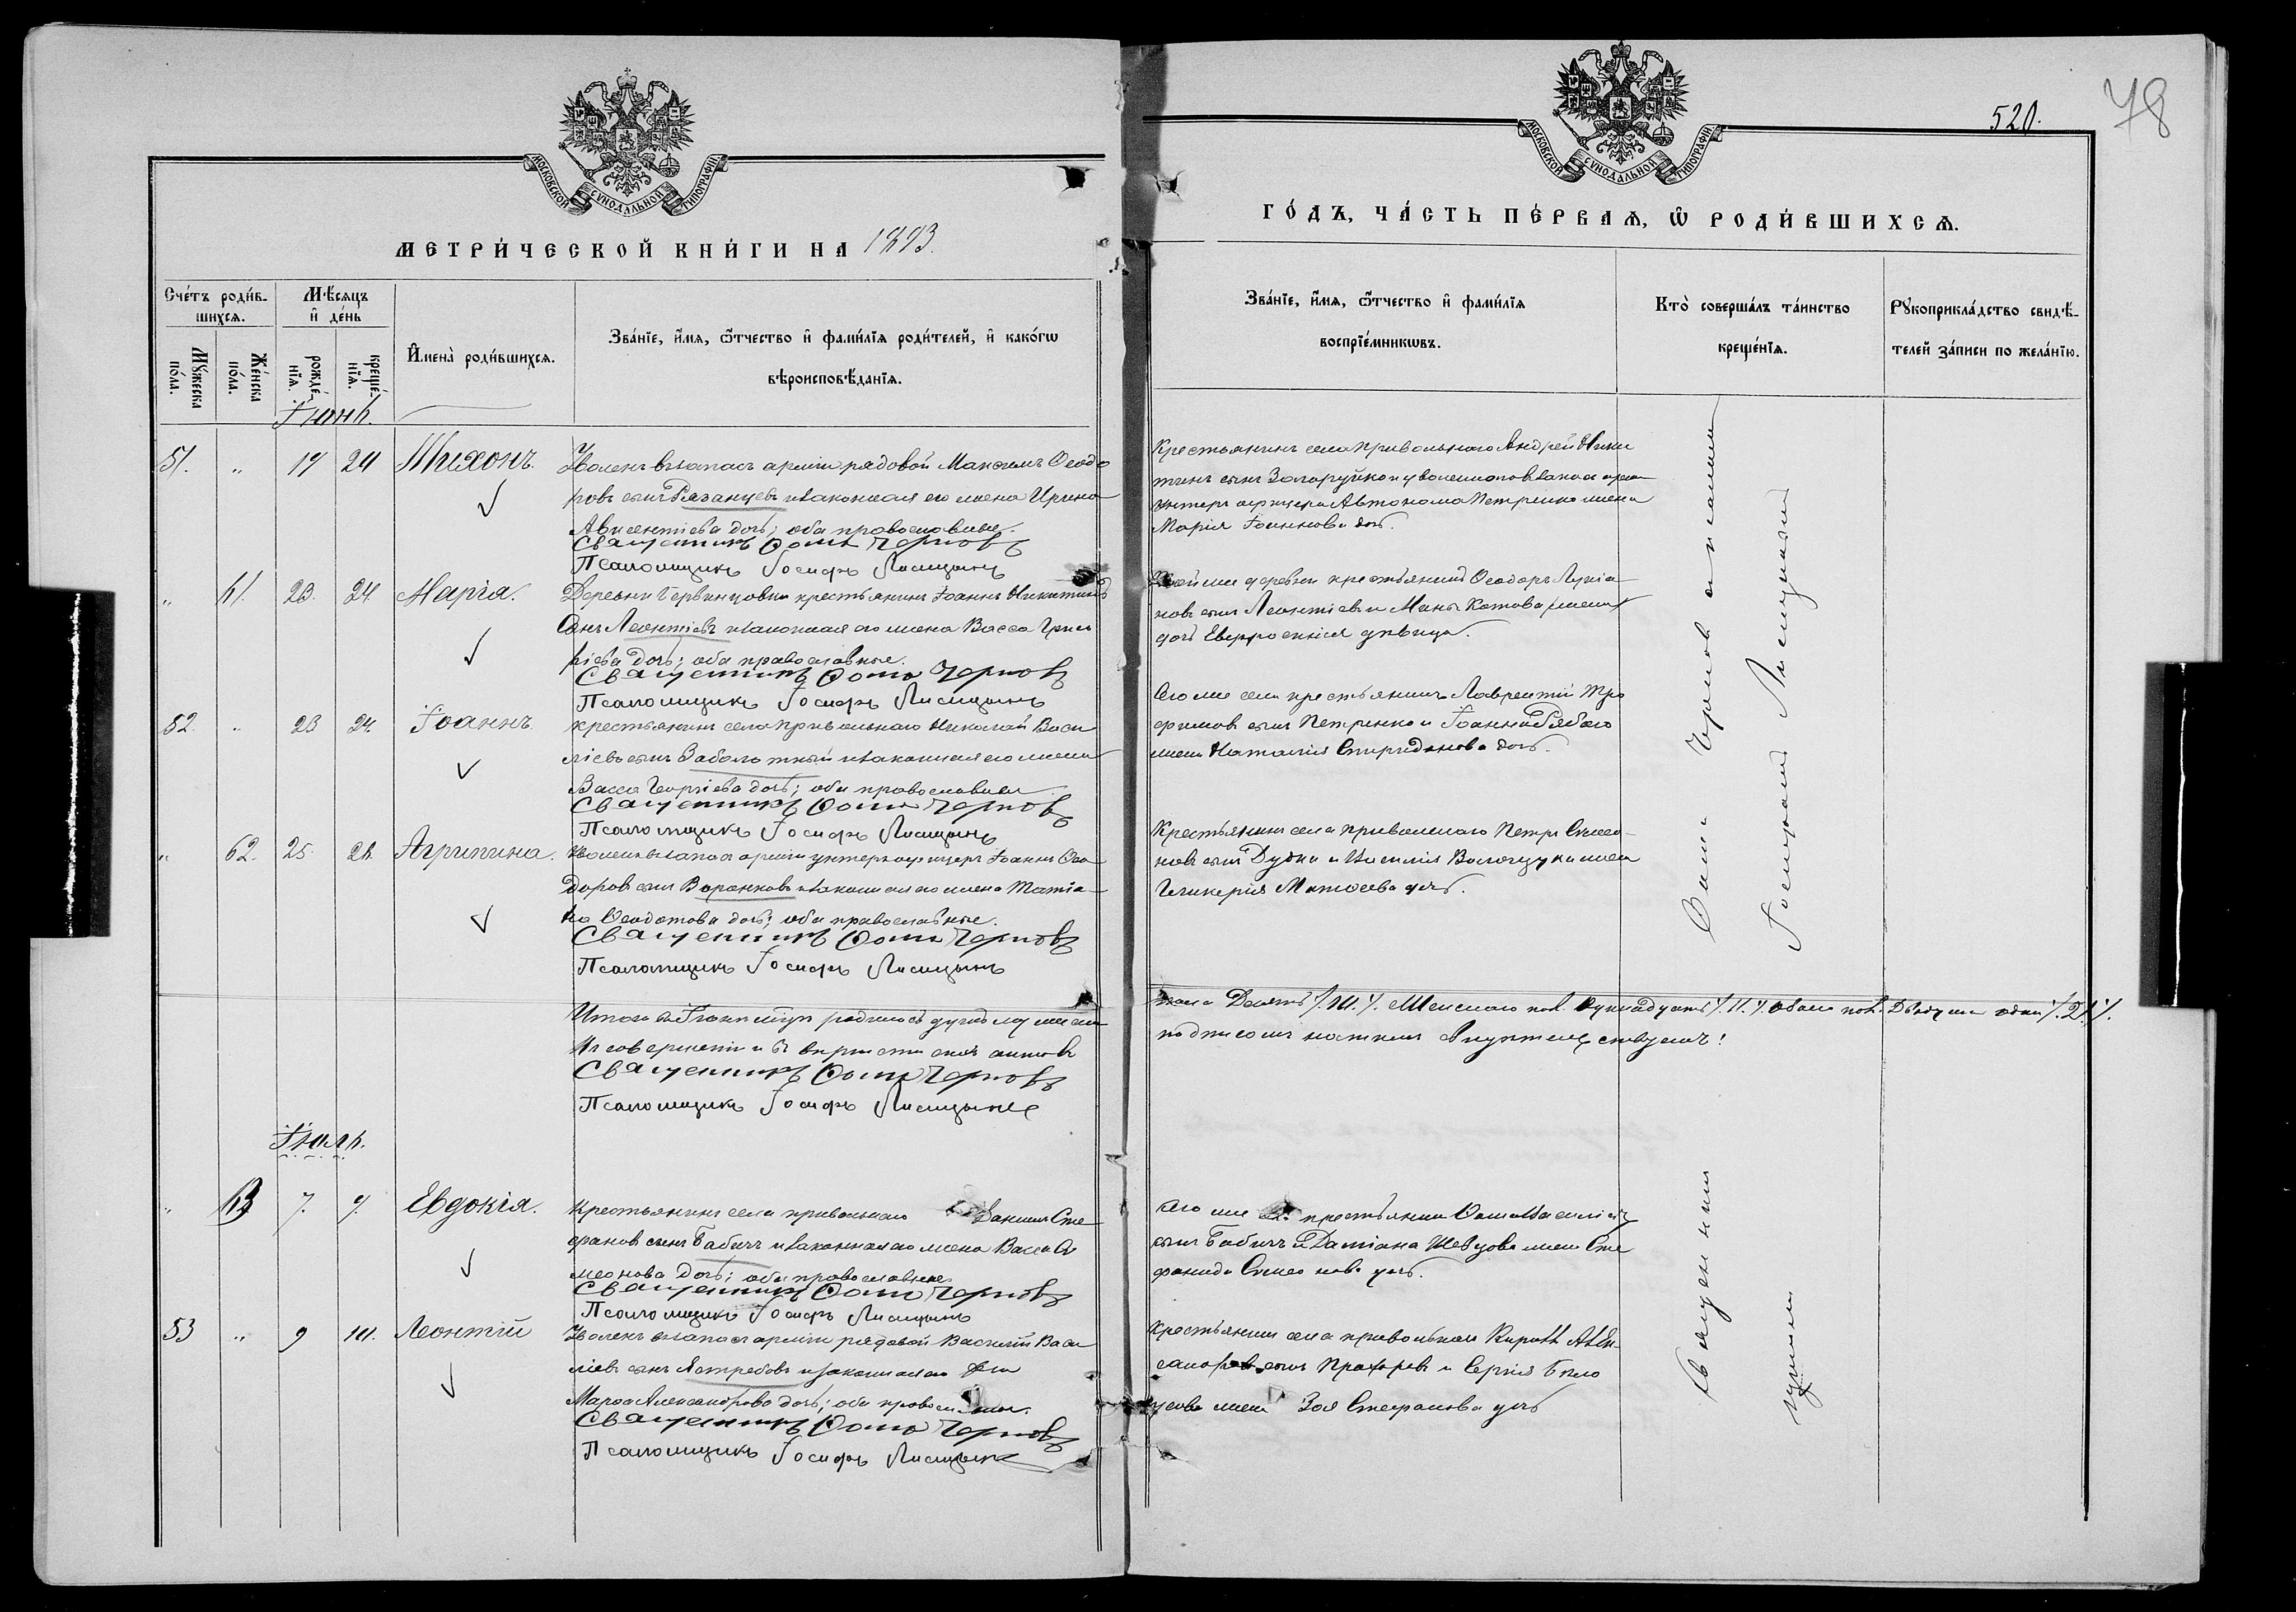 МОСКОВСКОЙ СУНОДАЛЬНОЙ ТИПОГРАФІИ
МЕТРИ́ЧЕСКОЙ КНИ́ГИ НА 1893.
Счётъ роди́в-
шихсѧ.
Мѣ́сяцъ
и҆ де́нь
Мꙋжеска по́ла.
Же́нска по́ла.
рожде́нїѧ.
креще́нїѧ.
И҆мена̀ роди́вшихсѧ.
Зва́нїе, и҆́мѧ, ѻ҆́тчество и҆ фами́лїѧ роди́телей, и҆ како́гѡ
вѣроисповѣ́данїѧ.
Іюнь.
51. " 19 24 Тихонъ. Уволенъ въ запасъ арміи рядовой Максимъ Ѳеодо
ровъ сынъ Рязанцевъ и законная его жена Ирина
Авксентіева дочь; оба православные.
Священникъ Ѳома Чернов
Псаломщикъ Іосифъ Лисицынъ
" 61. 23. 24 Марія. Деревни крестьянинъ Іоаннъ Никитинъ
Сынъ Леонтіевъ и законная его жена Васса Григо
ріева дочь; оба православные.
Священникъ Ѳома Чернов
Псаломщикъ Іосифъ Лисицынъ
52. " 23 24. Іоаннъ. Крестьянинъ села Привольнаго Николай Васи
ліевъ сынъ Заболотный и законная его жена
Васса Георгіева дочь; оба православные
Священникъ Ѳома Чернов
Псаломщикъ Іосифъ Лисицынъ
" 62. 25. 26. Агрипина. Уволенъ въ запасъ арміи унтеръ офицеръ Іоаннъ Ѳео
доровъ сынъ Воронковъ и законная его жена Татіа
на Ѳеодотова дочь; оба православные.
Священникъ Ѳома Чернов
Псаломщикъ Іосифъ Лисицынъ
Итого въ Іюнѣ м-цѣ родилось мужеска
Священникъ Ѳома Чернов
Псаломщикъ Іосифъ Лисицынъ
Іюль.
" 63 7. 9. Евдокія. Крестьянинъ села Привольнаго Даніилъ Сте
фановъ сынъ Бабичъ и законная его жена Васса Си
меонова дочь; оба православные
Священникъ Ѳома Чернов
Псаломщикъ Іосифъ Лисицынъ
53 " 9 10. Леонтій Уволенъ въ запасъ арміи рядовой Василій Васи
ліевъ сынъ Ястребовъ и законная его жена
Марѳа Александрова дочь; оба православные.
Священникъ Ѳома Чернов
Псаломщикъ Іосифъ Лисицынъ
520.
78
МОСКОВСКОЙ СУНОДАЛЬНОЙ ТИПОГРАФІИ
ГО́ДЪ, ЧА́СТЬ ПЕ́РВАѦ, Ѡ҆ РОДИ́ВШИХСѦ.
Зва́нїе, и҆́мѧ, ѻ҆́тчество и҆ фами́лїѧ
воспрїе́мникѡвъ.
Кто̀ соверша́лъ та́инство
креще́нїѧ.
Рꙋкоприкла́дство свидѣ́-
телей за́писи по жела́нїю.
Крестьянинъ села Привольнаго Андрей Ники
тинъ сынъ Загоруйко и уволеннаго въ запасъ арміи
унтеръ офицера Автонома Петренко жена
Марія Іоаннова дочь.
Той же деревни крестьянинъ Ѳеодоръ Лукіа
новъ сынъ Леонтіевъ и Котова
дочь Евфросинія дѣвица.
Того же села крестьянинъ Лаврентій Тро
фимовъ сынъ Петренко и Іоанна Рябаго
жена Наталія Спиридонова дочь.
Крестьянинъ села Привольнаго Петръ Симео-
новъ сынъ Дудка и Василія жена
Гликерія Матѳеева дочь.
пола Десять /.10./. Женскаго пол. Одиннадцать /.11./. Обоего пол. Двадцать одинъ /.21./.
подписомъ
Того же села крестьянинъ Ѳома Василіевъ
сынъ Бабичъ и Даміана Шевцова жена Сте
фанида Симеонова дочь.
Крестьянинъ села Привольнаго Кириллъ Алек-
сандровъ сынъ Прохоровъ и Сергія Бѣло
усова жена Зоя Стефанова дочь
Священникъ Ѳома Черновъ съ псаломщикомъ
Іосифомъ Лисицынымъ